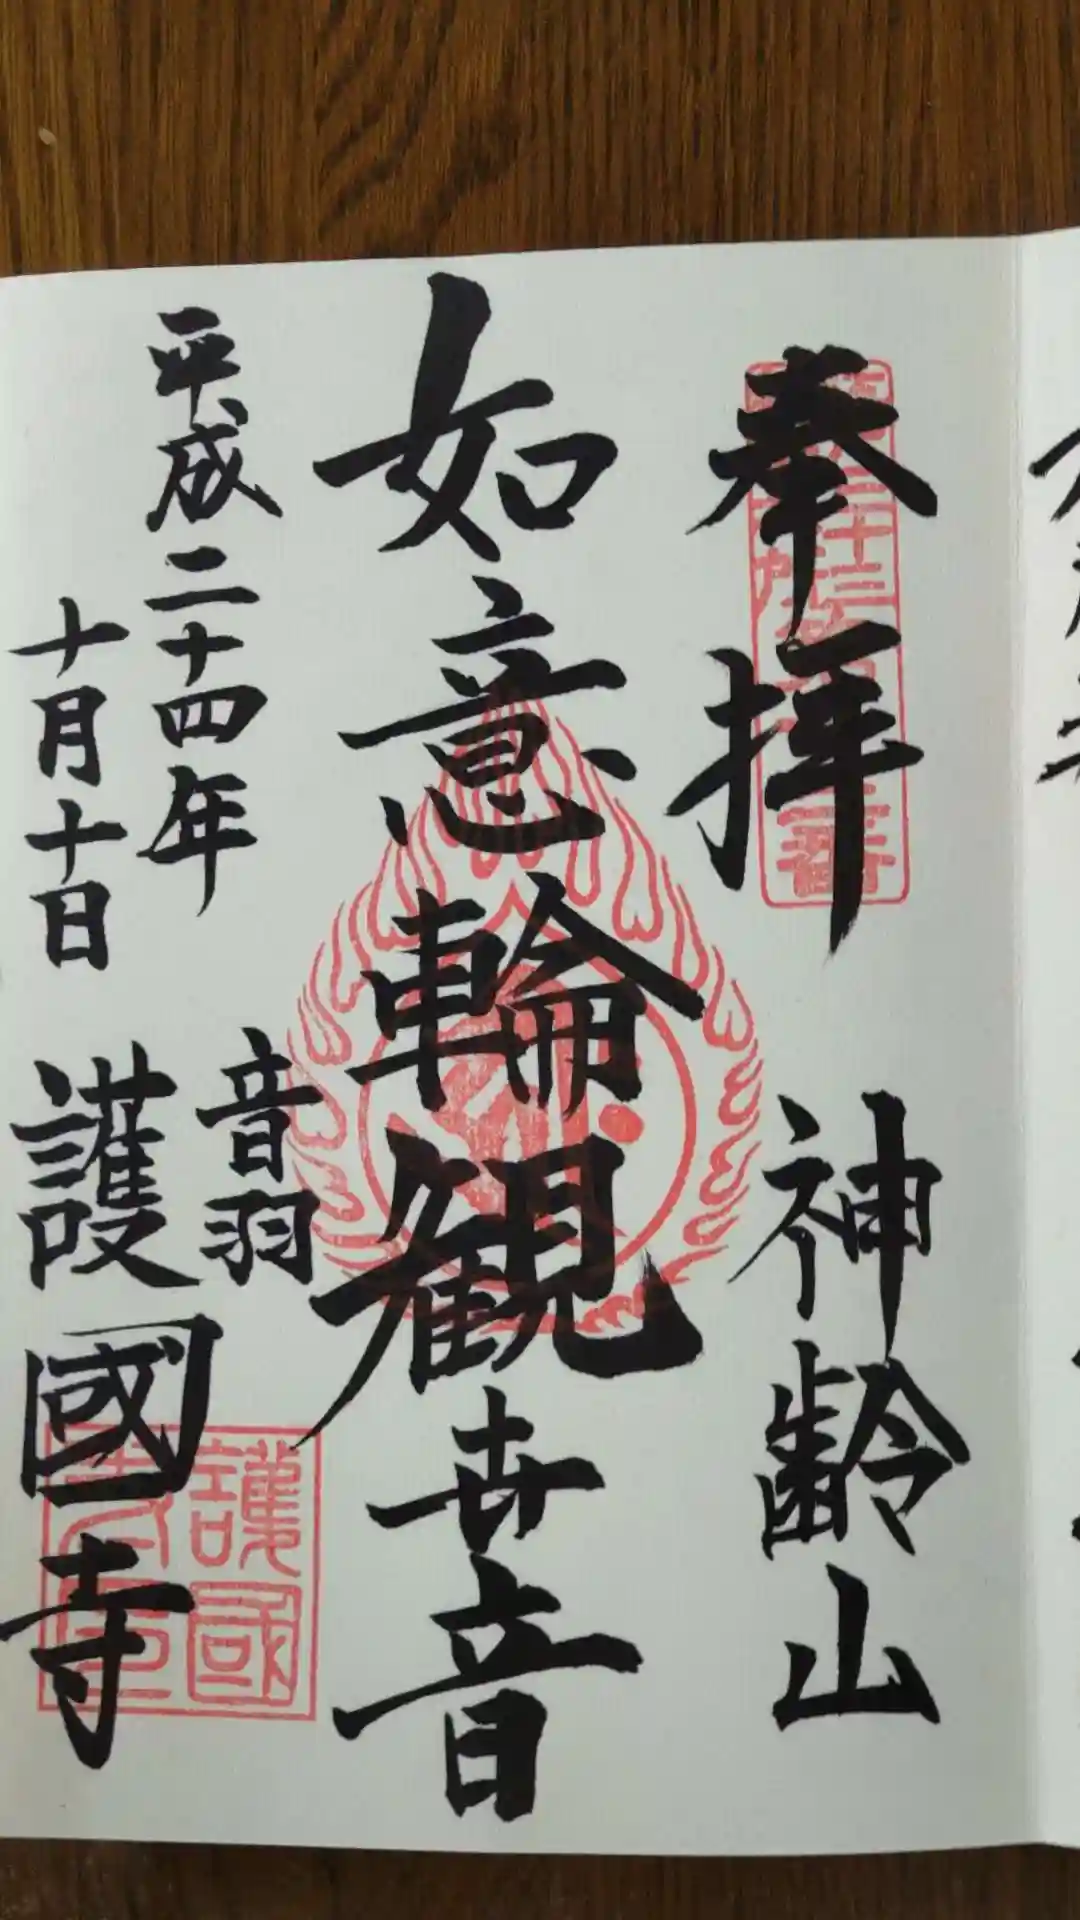 奉拝
神齢山
如意輪観世音
平成二十四年
十月十日
音羽
護國寺
護國